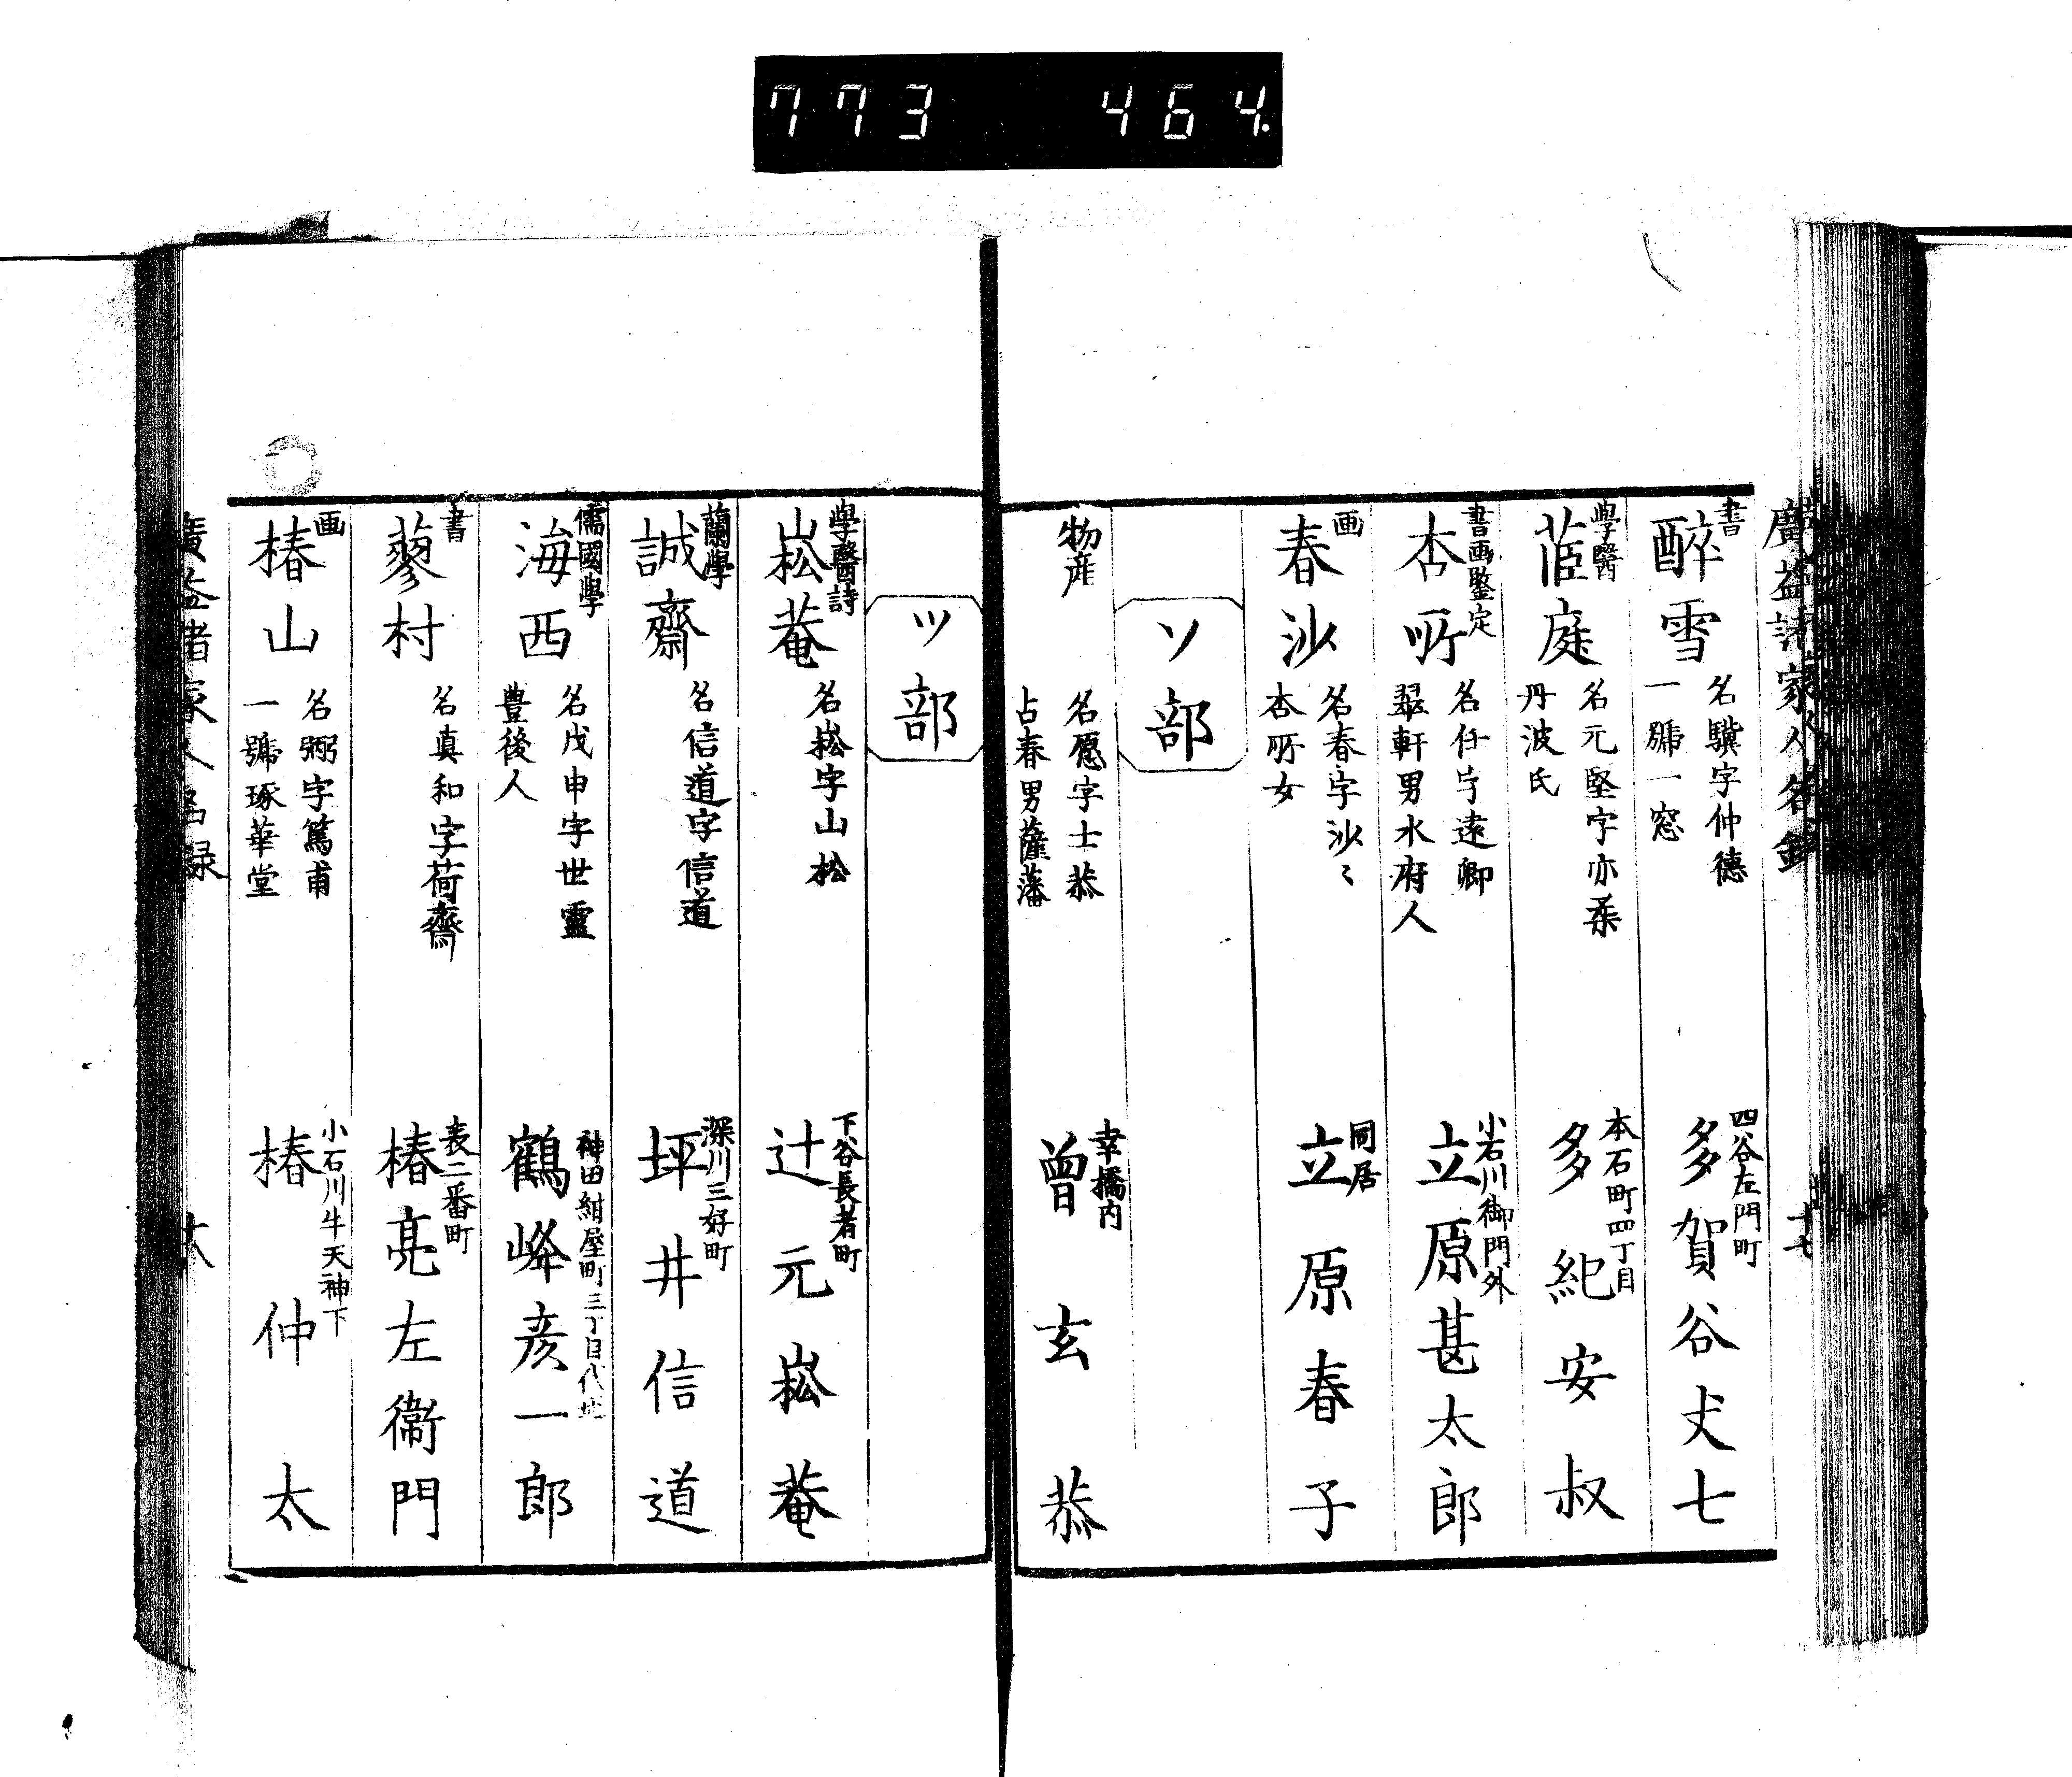 773 464.
廣益諸家人名録
十七
書
醉雪
名驥字仲德
一號一窓
四谷左門町
多賀谷丈七
學醫
茝庭
名元堅字亦柔
丹波氏
本石町四丁目
多紀安叔
書画鑒定
杏所
名任字遠卿
翠軒男水府人
小石川御門外
立原甚太郎
画
春沙
名春字沙〻
杏所女
同居
立原春子
ソ部
物産
名愿字士恭
占春男薩藩
幸橋内
曽玄恭
ツ部
學醫詩
崧菴
名崧字山松
下谷長者町
辻元崧菴
蘭學
誠齋
名信道字信道
深川三好町
坪井信道
儒國學
海西
名戊申字世靈
豊後人
神田紺屋町三丁目代地
鶴峰彦一郎
書
蓼村
名真和字荷齋
表二番町
椿亮左衞門
画
椿山
名弼字篤甫
一號琢華堂
小石川牛天神下
椿仲太
廣益諸家人名録